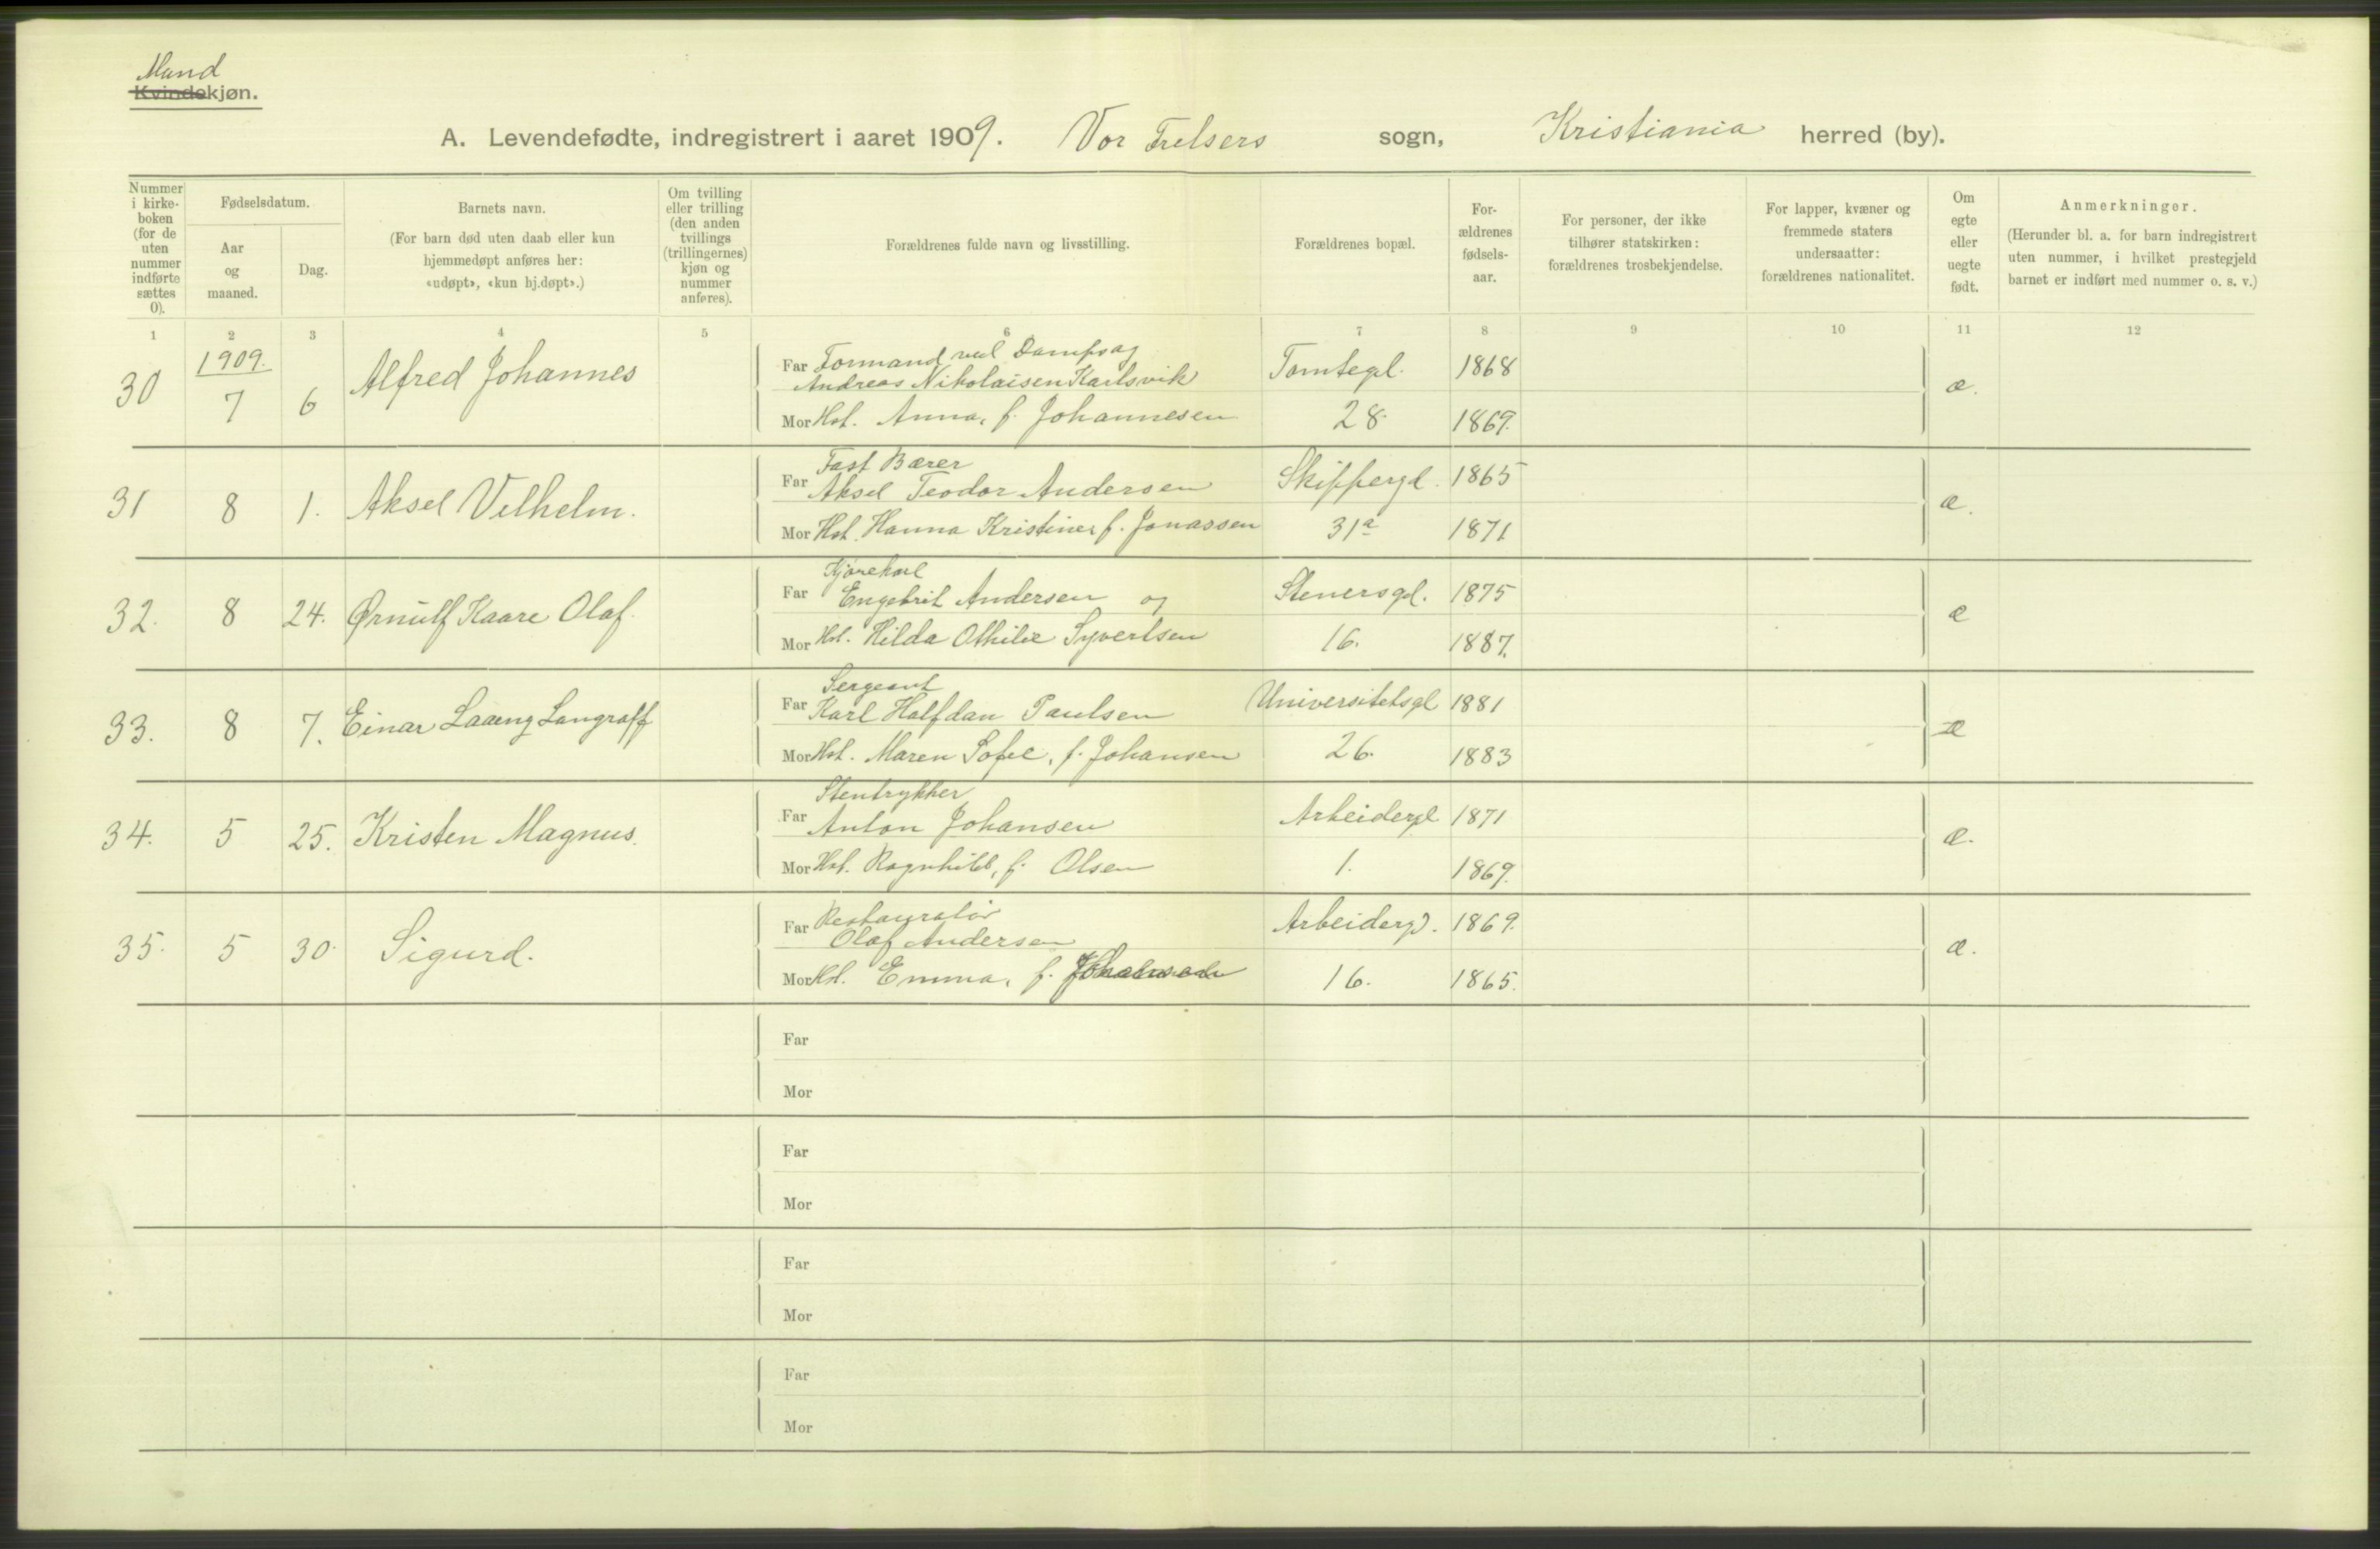 Mand
Kvindekjøn.
A. Levendefødte, indregistrert i aaret 1909. Vor Frelsers sogn, Kristiania herred (by).
Nummer i kirkeboken (for de uten nummer indførte sættes 0).
Fødselsdatum.
Aar og maaned.
Dag.
Barnets navn.
(For barn død uten daab eller kun hjemmedøpt anføres her: «udøpt», «kun hj.døpt».)
Om tvilling eller trilling (den anden tvillings (trillingernes) kjøn og nummer anføres).
Forældrenes fulde navn og livsstilling.
Forældrenes bopæl.
Forældrenes fødselsaar.
For personer, der ikke tilhører statskirken: forældrenes trosbekjendelse.
For lapper, kvæner og fremmede staters undersaatter: forældrenes nationalitet.
Om egte eller uegte født.
Anmerkninger.
(Herunder bl. a. for barn indregistrert uten nummer, i hvilket prestegjeld barnet er indført med nummer o. s. v.)
1 2 3 4 5 6 7 8 9 10 11 12
1909.
30 7 6 Alfred Johannes
Far Formand ved Dampsag
Andreas Nikolaisen Karlsvik Tomtegd. 1868 æ.
Mor Hst. Anna, f. Johannesen 28. 1869.
31 8 1. Aksel Vilhelm.
Far Fast Bærer
Aksel Teodor Andersen Skippergd. 1865 æ.
Mor Hst. Hanna Kristine, f. Jonassen 31a 1871
32. 8 24. Ørnulf Kaare Olaf.
Far Kjørekarl
Engebrit Andersen og Stenersgd. 1875 æ
Mor Hst. Hilda Othilie Syvertsen 16. 1887.
33. 8 7. Einar Laaeng Langraff
Far Sergeant
Karl Halfdan Paulsen Universitetsgd 1881 æ
Mor Hst. Maren Sofie, f. Johansen 26. 1883
34. 5 25. Kristen Magnus.
Far Stentrykker
Anton Johansen Arbeidergd. 1871 æ.
Mor Hst. Ragnhild, f. Olsen 1. 1869.
35. 5 30. Sigurd.
Far Restauratør
Olaf Andersen Arbeidergd. 1869. æ.
Mor Hst. Emma, f. 16. 1865.
Far
Mor
Far
Mor
Far
Mor
Far
Mor